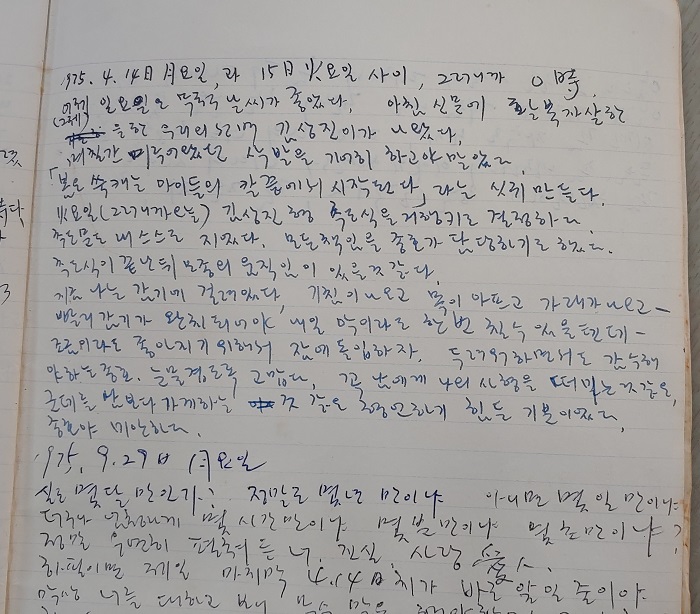 1975. 4. 14日 月요일, 과 15日 火요일 사이, 그러니까 0時.
어제 일요일은 무척 날씨가 좋았다. 아침 신문에 오늘 자살한
(그제) 우리의 김상진이가 나왔다.
며칠간 미루어왔던 삭발을 기어히 하고야 말았다.
「봄은 쑥캐는 아이들의 칼끝에서 시작된다」라는 싯귀 만들다.
火요일(그러니까 오늘) 김상진형 추도식을 거행키로 결정하다.
추도문도 내 스스로 지었다. 모든 책임을 종호가 담당하기로 했다.
추도식이 끝난뒤 모종의 움직임이 있을것 같다.
지금 나는 감기에 걸려있다, 기침이 나오고 목이 아프고 가래가 나오고ー
빨리 감기가 완치되어야 내일 악이라도 한번 칠 수 있을텐데ー
조금이라도 좋아지기 위해서 잠에 돌입하자. 두려워하면서도 감수해
야하는 종호. 눈물겹도록 고맙다. 꼭 남에게 나의 사형을 떠맡기는 것 같은,
군대를 가게하는 것 같은 형언하기 힘든 기분이었다.
종호야 미안하다.
1975. 9. 29日 月요일
실로 몇달 만인가? 정말로 몇년 만이냐 아니면 몇일 만이냐
몇 시간만이냐 몇 분만이냐 몇 초만이냐?
정말 우연히 펼쳐든 너. 진실, 사랑 愛
제일 마지막 4.14日치가 바로 앞일 줄이야
너를 대하고 보니